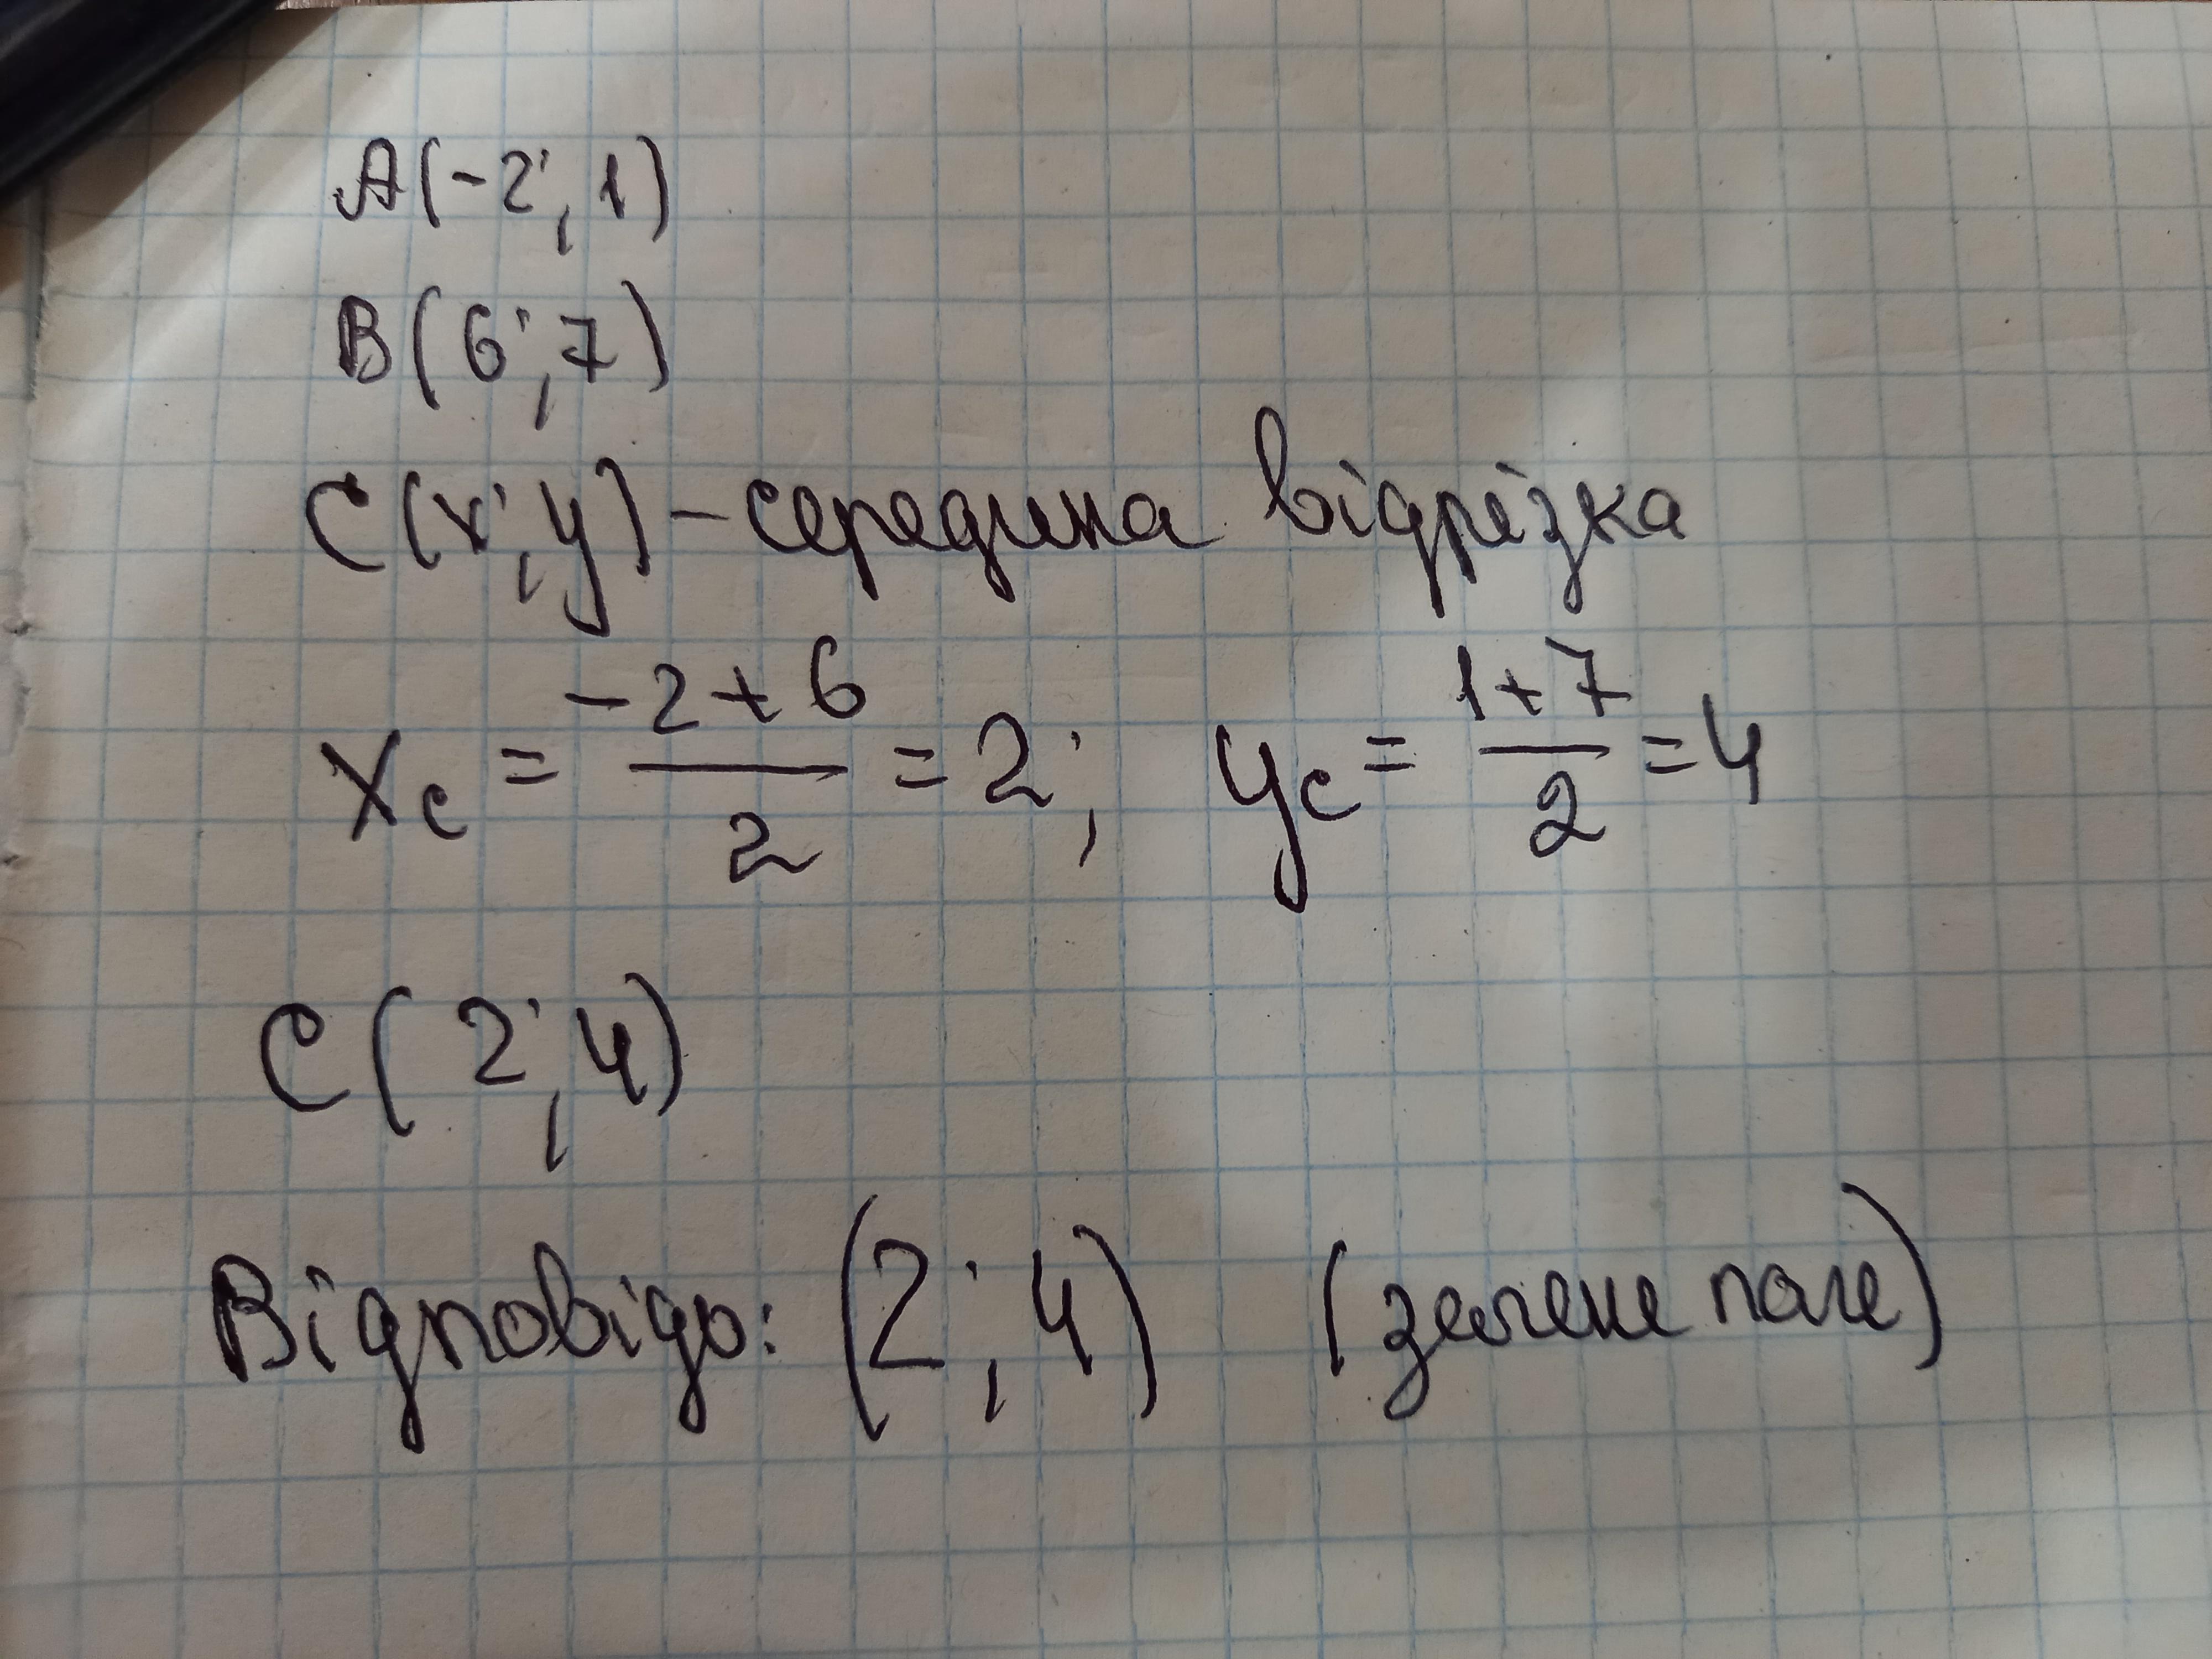 A(-2; 1)
B(6; 7)
C(x; y) - середина відрізка
x_c = \frac{-2+6}{2} = 2; y_c = \frac{1+7}{2} = 4
C(2; 4)
Відповідь: (2; 4) (зелене поле)